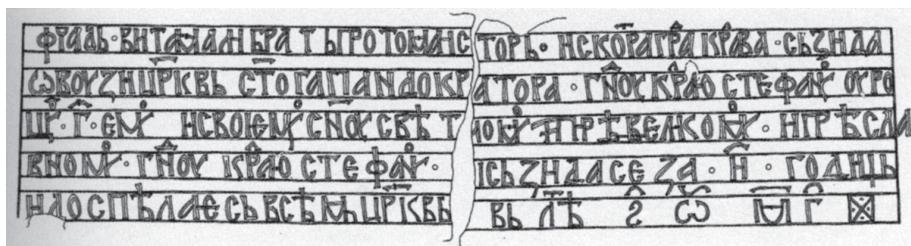 ФРАДЬ · ВИТАМАЛИ БРА Т ЬПРОТОМАИСТОРЬ · ИСКОРАГРА КРАВА · СЬЗИДА
ѠВОУЗИЦРКВЬ СТОГАПАНДОКРАТОРА · ГНОУ КРАЮ СТЕФАНꙊ ОУРО
· Г · ЕМꙊ ИСВОЮЕМꙊ СНОУ СВѢТЛОМꙊ ИПРѢВЕЛИКОМꙊ · ИПРѢСЛА
ВНОМꙊ · ГНОУ КРАЮ СТЕФАНꙊ · ИСЬЗИДАСЕ ЗА · И · ГОДИЩЬ
ИДОСПѢЛАЕСЬВСѢМЬЦРКВЬ ВЬ ЛѢ Ѕ Ѿ М Г